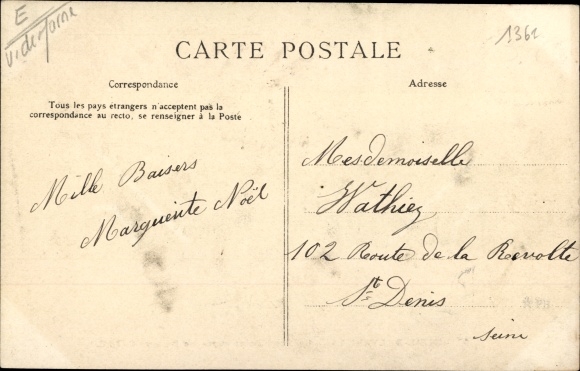 E
1361
CARTE POSTALE
Correspondance
Adresse
Tous les pays étrangers n'acceptent pas la
correspondance au recto, se renseigner à la Poste
Mille Baisers
Marguerite Noël
Mesdemoiselle
Wathiez
102 Route de la Revolte
St Denis
Seine